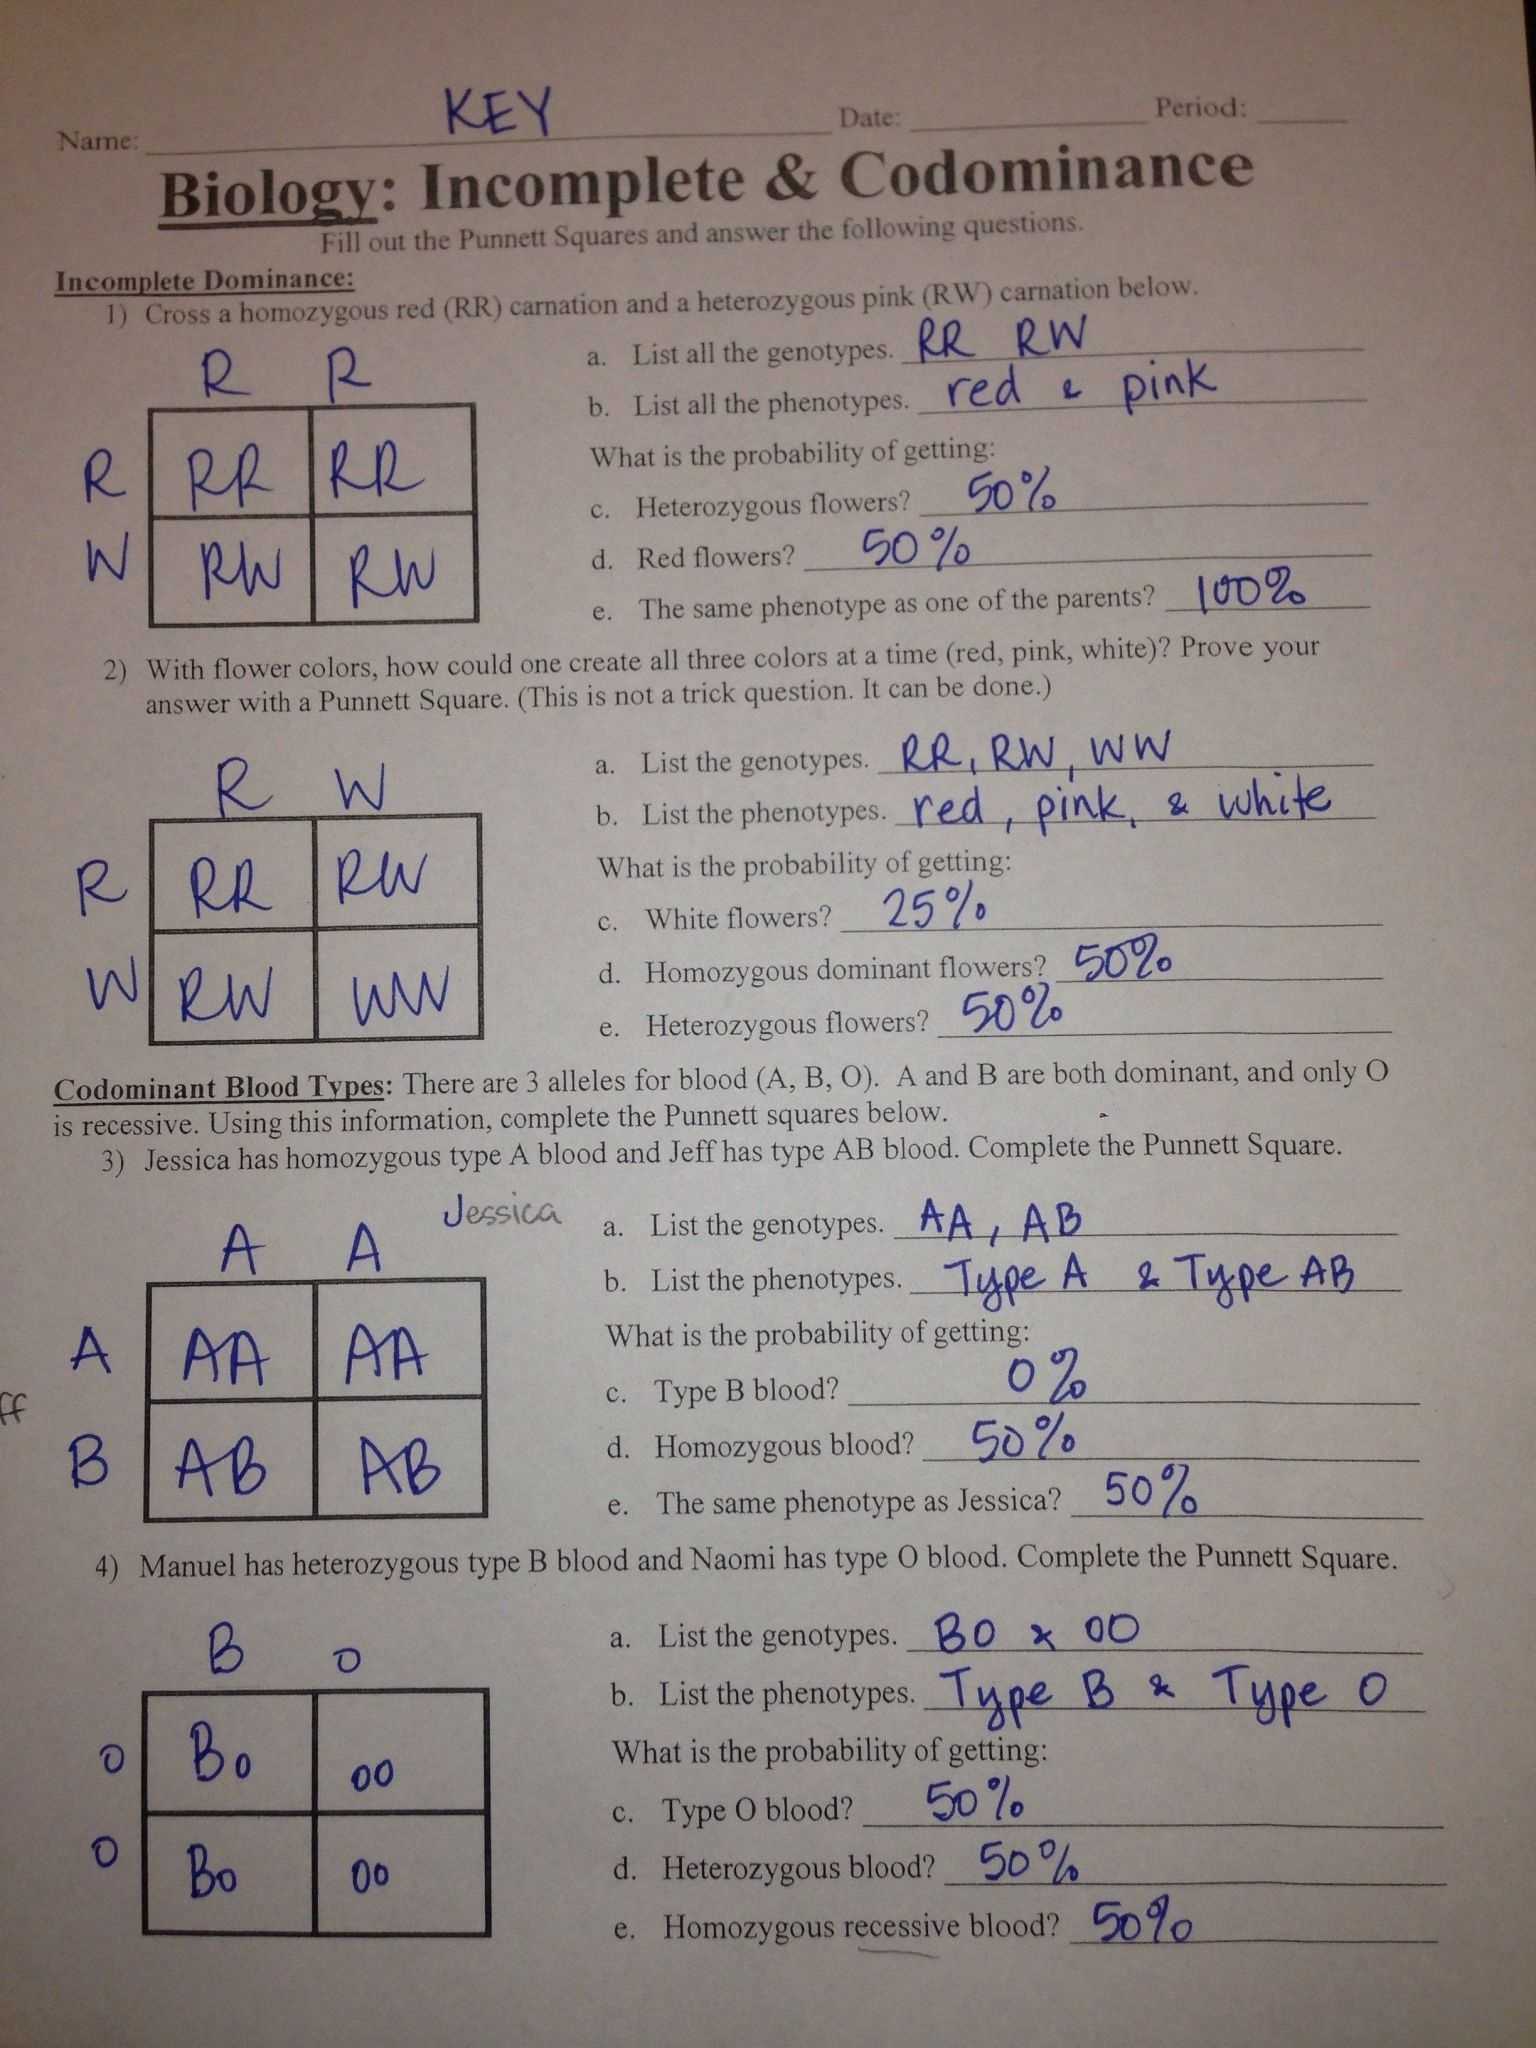 Name: KEY Date: Period:
Biology: Incomplete & Codominance
Fill out the Punnett Squares and answer the following questions.
Incomplete Dominance:
1) Cross a homozygous red (RR) carnation and a heterozygous pink (RW) carnation below.
R R
R RR RR
W RW RW
a. List all the genotypes. RR RW
b. List all the phenotypes. red & pink
What is the probability of getting:
c. Heterozygous flowers? 50%
d. Red flowers? 50%
e. The same phenotype as one of the parents? 100%
2) With flower colors, how could one create all three colors at a time (red, pink, white)? Prove your
answer with a Punnett Square. (This is not a trick question. It can be done.)
R W
R RR RW
W RW WW
a. List the genotypes. RR, RW, WW
b. List the phenotypes. red, pink, & white
What is the probability of getting:
c. White flowers? 25%
d. Homozygous dominant flowers? 50%
e. Heterozygous flowers? 50%
Codominant Blood Types: There are 3 alleles for blood (A, B, O). A and B are both dominant, and only O
is recessive. Using this information, complete the Punnett squares below.
3) Jessica has homozygous type A blood and Jeff has type AB blood. Complete the Punnett Square.
A A Jessica
A AA AA
ff
B AB AB
a. List the genotypes. AA, AB
b. List the phenotypes. Type A & Type AB
What is the probability of getting:
c. Type B blood? 0%
d. Homozygous blood? 50%
e. The same phenotype as Jessica? 50%
4) Manuel has heterozygous type B blood and Naomi has type O blood. Complete the Punnett Square.
B O
O BO OO
O BO OO
a. List the genotypes. BO & OO
b. List the phenotypes. Type B & Type O
What is the probability of getting:
c. Type O blood? 50%
d. Heterozygous blood? 50%
e. Homozygous recessive blood? 50%